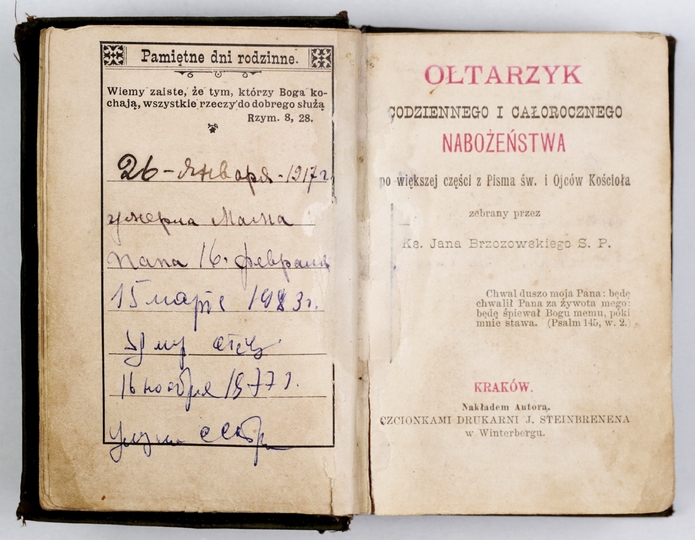 Pamiętne dni rodzinne.
Wiemy zaiste, że tym, którzy Boga ko-
chają, wszystkie rzeczy do dobrego służą
Rzym. 8, 28.
26 - января - 1917 г
умерла Мама
папа 16. февраля
15 марта 1983 г.
отец
16 ноября 1977 г.
OŁTARZYK
CODZIENNEGO I CAŁOROCZNEGO
NABOŻEŃSTWA
po większej części z Pisma św. i Ojców Kościoła
zebrany przez
Ks. Jana Brzozowskiego S. P.
Chwal duszo moja Pana: będę
chwalił Pana za żywota mego:
będę śpiewał Bogu memu, póki
mnie stawa. (Psalm 145, w. 2.)
KRAKÓW.
Nakładem Autora.
CZCIONKAMI DRUKARNI J. STEINBRENENA
w Winterbergu.